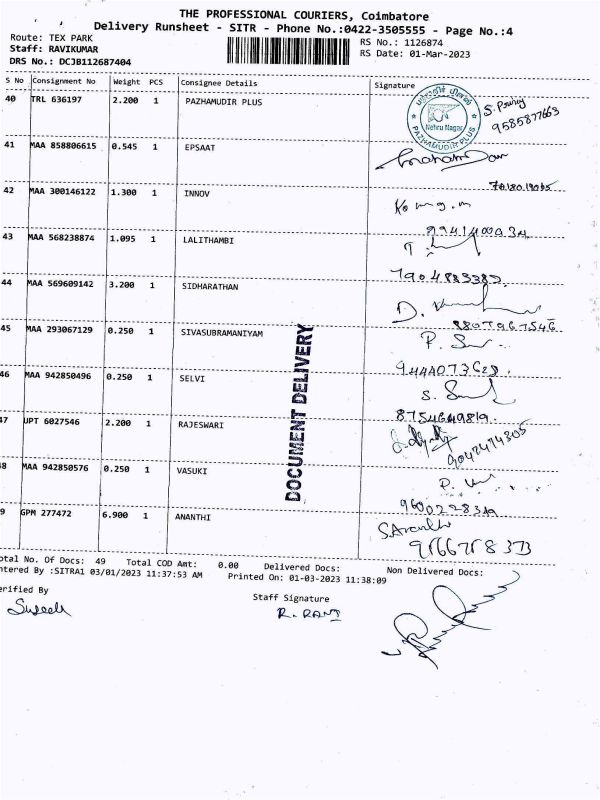 THE PROFESSIONAL COURIERS, Coimbatore
Delivery Runsheet - SITR - Phone No.:0422-3505555 - Page No.:4
Route: TEX PARK
Staff: RAVIKUMAR
DRS No.: DCJB112687404
RS No.: 1126874
RS Date: 01-Mar-2023
S No Consignment No Weight PCS Consignee Details Signature
40 TRL 636197 2.200 1 PAZHAMUDIR PLUS
Nehru Nagar
PAZHAMUDIR PLUS
9585877663
41 MAA 858806615 0.545 1 EPSAAT
42 MAA 300146122 1.300 1 INNOV
43 MAA 568238874 1.095 1 LALITHAMBI
44 MAA 569609142 3.200 1 SIDHARATHAN
8807967546
45 MAA 293067129 0.250 1 SIVASUBRAMANIYAM
46 MAA 942850496 0.250 1 SELVI
8754649819.
47 UPT 6027546 2.200 1 RAJESWARI
9042474305
48 MAA 942850576 0.250 1 VASUKI
9 GPM 277472 6.900 1 ANANTHI
DOCUMENT DELIVERY
otal No. Of Docs: 49 Total COD Amt: 0.00 Delivered Docs: Non Delivered Docs:
ntered By :SITRA1 03/01/2023 11:37:53 AM Printed On: 01-03-2023 11:38:09
erified By
Staff Signature